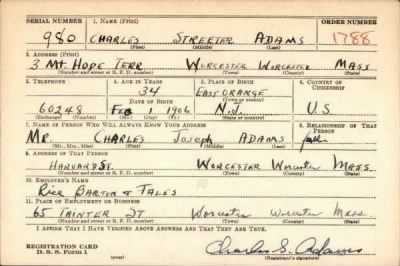 SERIAL NUMBER 1. NAME (Print) ORDER NUMBER
980 CHARLES STREETER ADAMS 1788
(First) (Middle) (Last)
2. ADDRESS (Print)
3 Mt. HOPE TERR WORCESTER WORCESTER MASS
(Number and street or R. F. D. number) (Town) (County) (State)
3. TELEPHONE 4. AGE IN YEARS 5. PLACE OF BIRTH 6. COUNTRY OF CITIZENSHIP
34 EAST ORANGE
DATE OF BIRTH (Town or county)
60248 FEB 1 1906 N.J. U.S.
(Exchange) (No.) (Mo.) (Day) (Yr.) (State or country)
7. NAME OF PERSON WHO WILL ALWAYS KNOW YOUR ADDRESS 8. RELATIONSHIP OF THAT PERSON
MR. CHARLES JOSEPH ADAMS
(Mr., Mrs., Miss) (First) (Middle) (Last)
9. ADDRESS OF THAT PERSON
HARVARD ST. WORCESTER Worcester MASS.
(Number and street or R. F. D. number) (Town) (County) (State)
10. EMPLOYER'S NAME
RICE BARTON & FALES
11. PLACE OF EMPLOYMENT OR BUSINESS
65 TAINTER ST Worcester Worcester Mass
(Number and street or R. F. D. number) (Town) (County) (State)
I AFFIRM THAT I HAVE VERIFIED ABOVE ANSWERS AND THAT THEY ARE TRUE.
REGISTRATION CARD Charles S. Adams
D. S. S. Form 1 (over) (Registrant's signature)